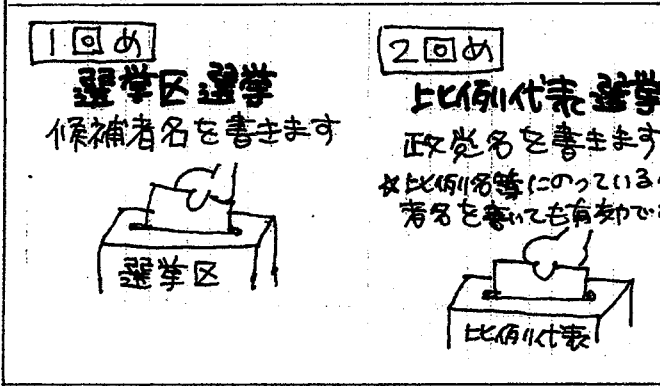 1回め
選挙区選挙
候補者名を書きます
選挙区
2回め
比例代表選挙
政党名を書きます
☆比例名簿にのっている
者名を書いても有効で
比例代表